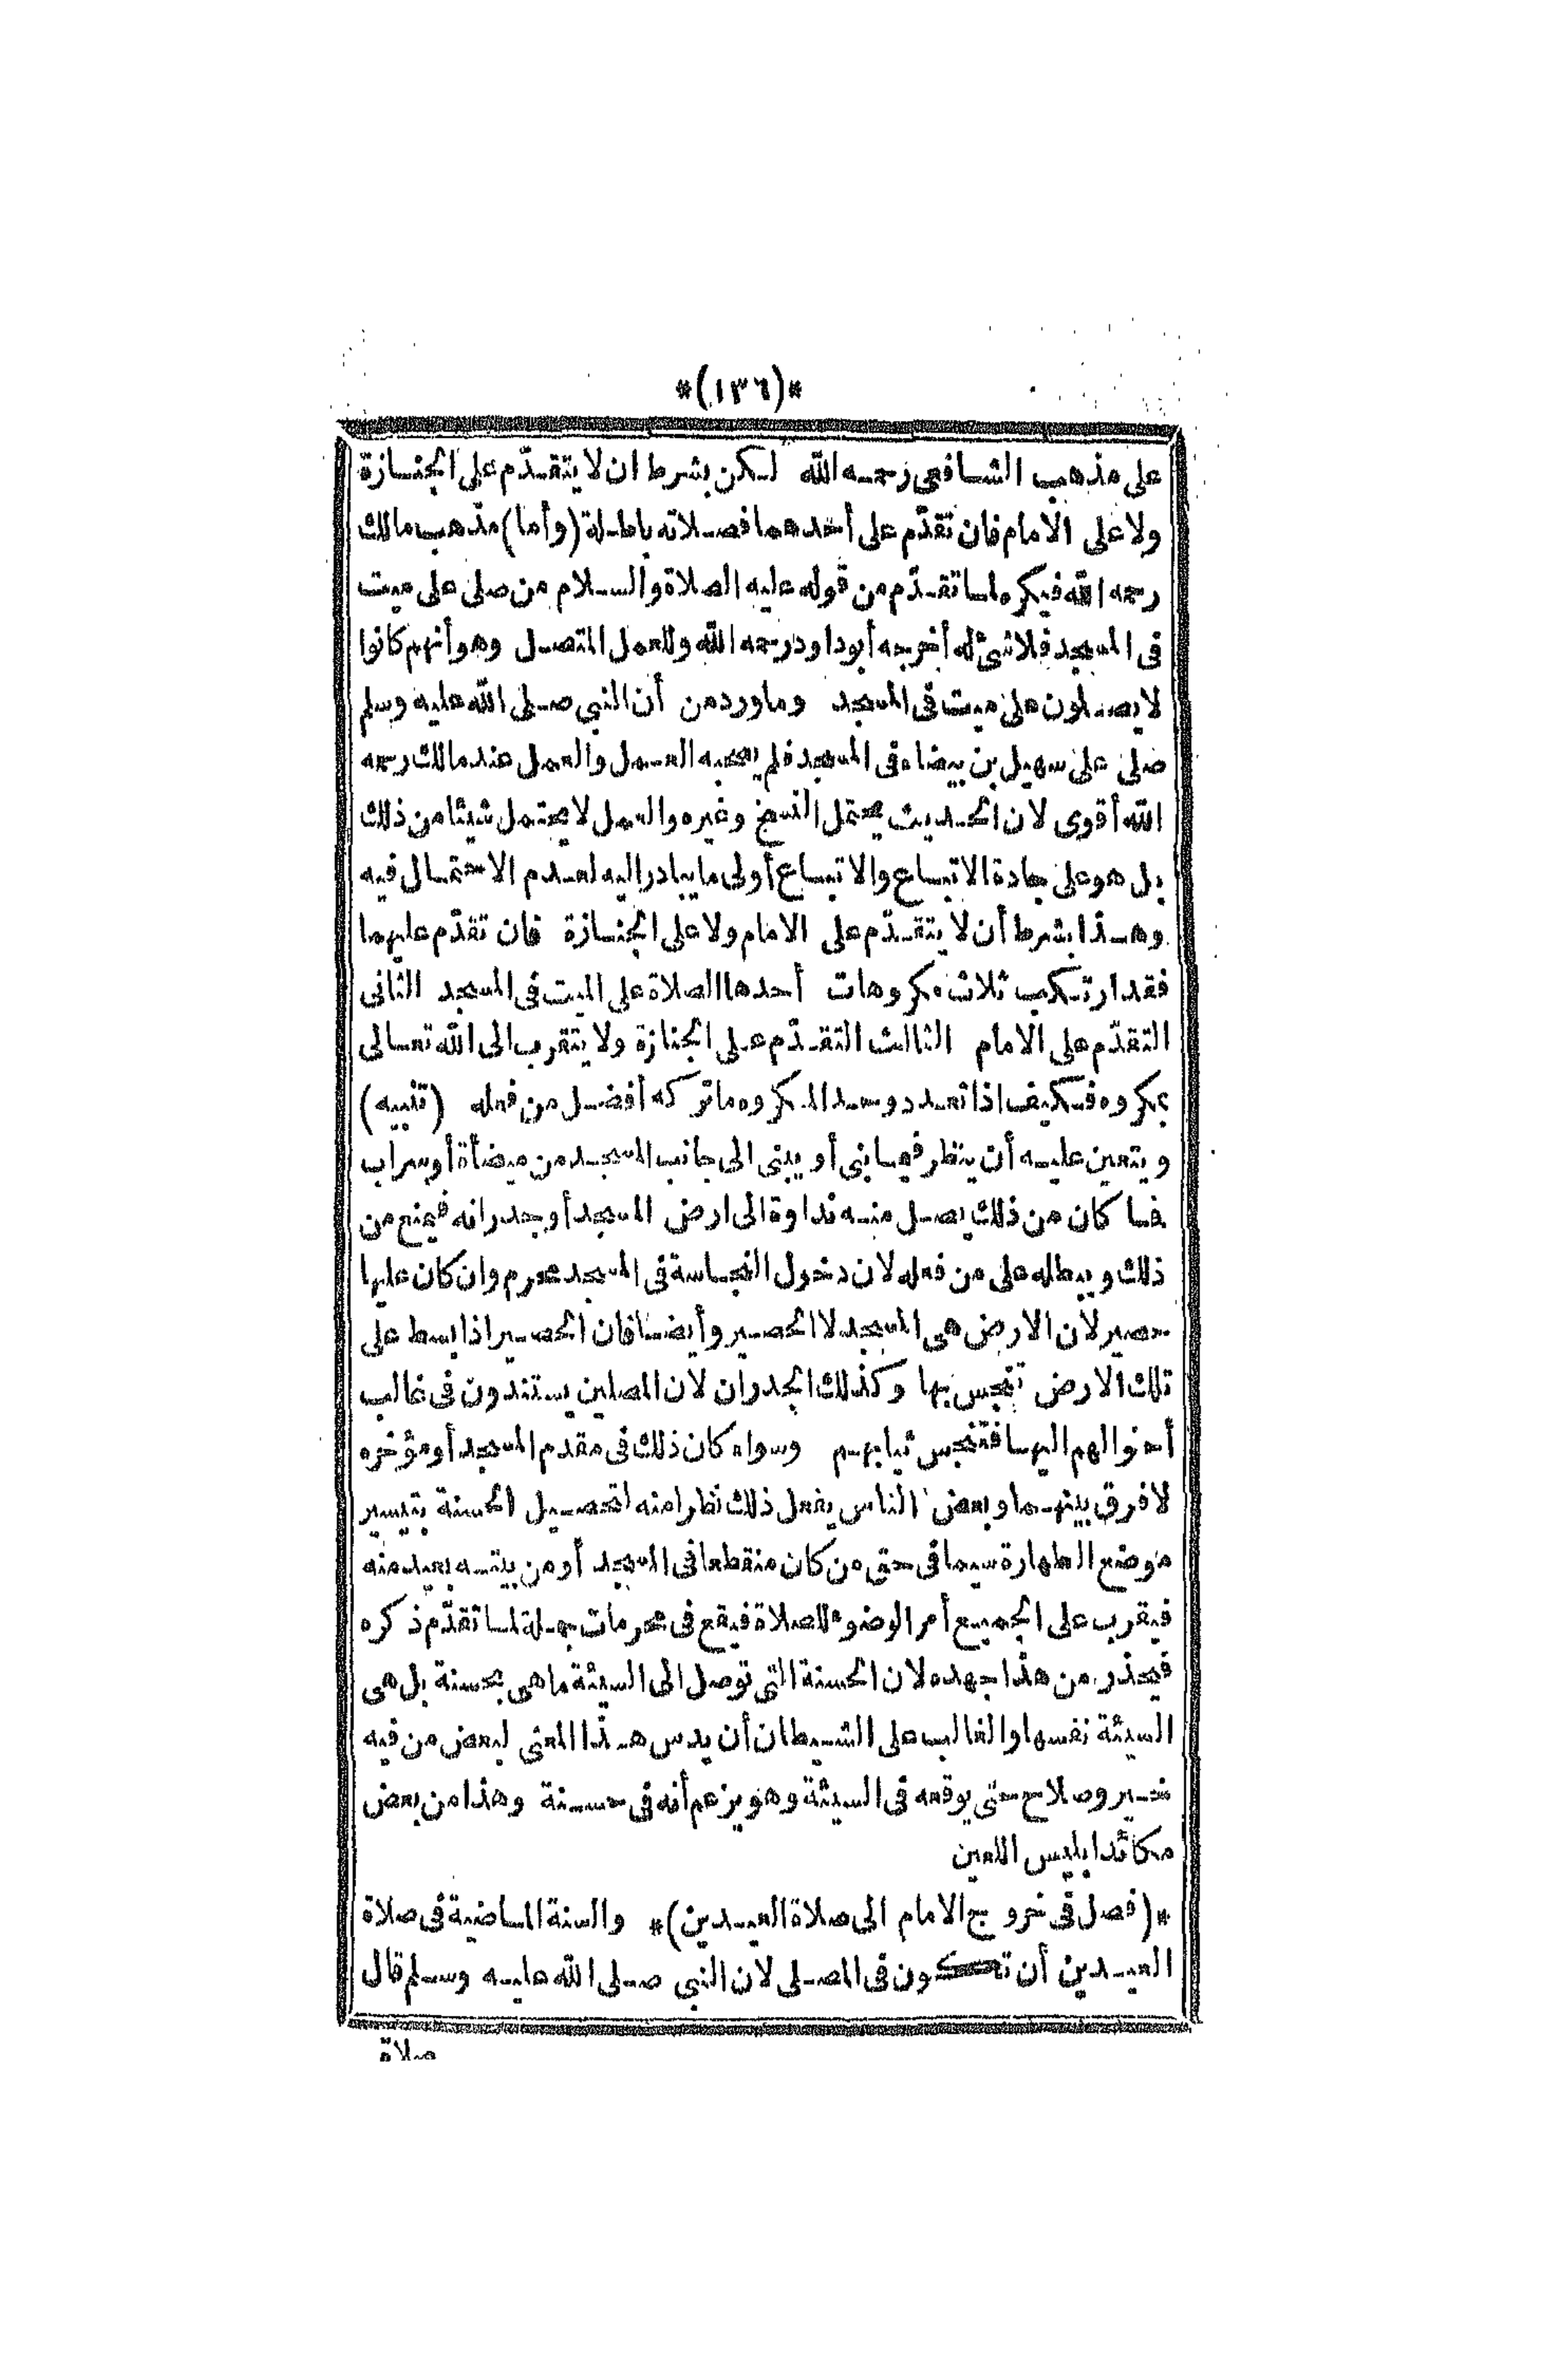 *(١٣٦)*
على مذهب الشافعى رحمه الله لكن بشرط ان لا يتقدّم على الجنازة
ولا على الامام فان تقدّم على أحدهما فصلاته باطلة (وأما) مذهب مالك
رحمه الله فيكره لما تقدّم من قوله عليه الصلاة والسلام من صلى على ميت
فى المسجد فلا شئ له أخرجه أبو داود رحمه الله وللعمل المتصل وهو أنهم كانوا
لا يصلون على ميت فى المسجد وما ورد من أن النبي صلى الله عليه وسلم
صلى على سهيل بن بيضاء فى المسجد فلم يصحبه العمل والعمل عند مالك رحمه
الله أقوى لان الحديث يحتمل النسخ وغيره والعمل لا يحتمل شيئا من ذلك
بل هو على جادة الاتباع والاتباع أولى ما يبادر اليه لعدم الاحتمال فيه
وهذا بشرط أن لا يتقدّم على الامام ولا على الجنازة فان تقدّم عليهما
فقد ارتكب ثلاث مكروهات أحدها الصلاة على الميت فى المسجد الثانى
التقدّم على الامام الثالث التقدّم على الجنازة ولا يتقرب الى الله تعالى
بمكروه فكيف اذا تعدد وحد المكروه ما تركه أفضل من فعله (تنبيه)
ويتعين عليه أن ينظر فيما بنى أو يبنى الى جانب المسجد من ميضأة أو سراب
فما كان من ذلك يصل منه نداوة الى ارض المسجد أو جدرانه فيمنع من
ذلك ويبطله على من فعله لان دخول النجاسة فى المسجد محرم وان كان عليها
حصير لأن الارض هى المسجد لا الحصير وأيضا فان الحصير اذا بسط على
تلك الارض تنجس بها وكذلك الجدران لان المصلين يستندون فى غالب
أحوالهم اليها فتنجس ثيابهم وسواء كان ذلك فى مقدم المسجد أو مؤخره
لا فرق بينهما وبعض الناس يفعل ذلك نظرا منه لتحصيل الحسنة بتيسير
موضع الطهارة سيما فى حق من كان منقطعا فى المسجد أو من بيته بعيد منه
فيقرب على الجميع أمر الوضوء للصلاة فيقع فى محرمات جملة لما تقدّم ذكره
فيحذر من هذا جهده لان الحسنة التى توصل الى السيئة ما هى بحسنة بل هى
السيئة نفسها والغالب على الشيطان أن يدس هذا المعنى لبعض من فيه
خير وصلاح حتى يوقعه فى السيئة وهو يزعم أنه فى حسنة وهذا من بعض
مكائد ابليس اللعين
*(فصل فى خروج الامام الى صلاة العيدين)* والسنة الماضية فى صلاة
العيدين أن تكون فى المصلى لان النبي صلى الله عليه وسلم قال
صلاة